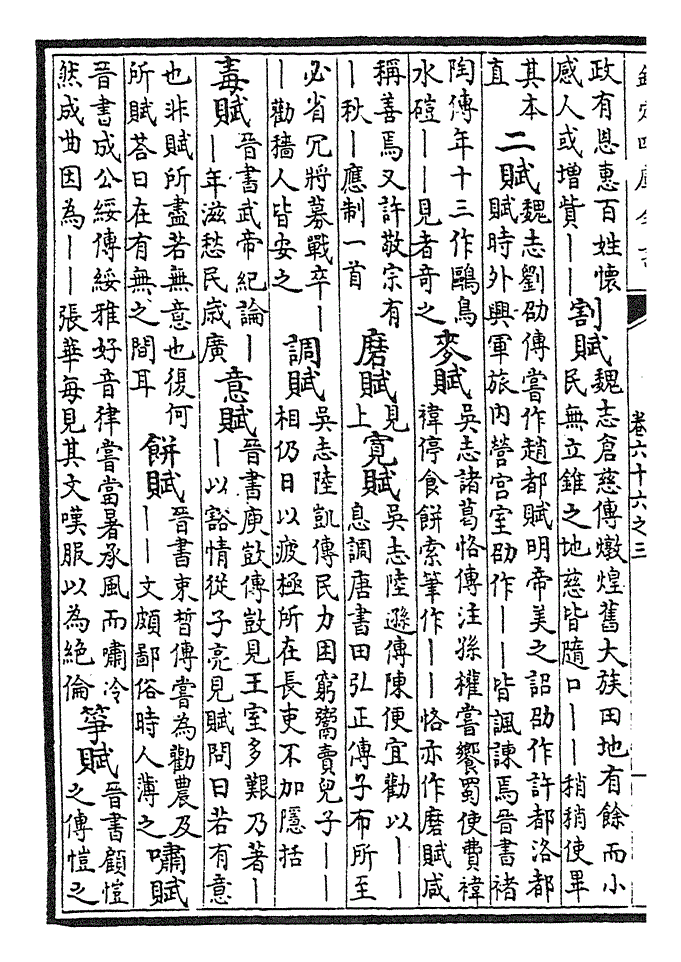 欽定四庫全書
卷六十六之三
政有恩惠百姓懷
感人或增貲一一
割賦
魏志倉慈傳燉煌舊大族田地有餘而小
民無立錐之地慈皆隨口一一稍稍使畢
其本
直
二賦
魏志劉劭傳嘗作趙都賦明帝美之詔劭作許都洛都
賦時外興軍旅内營宫室劭作一一皆諷諫焉晉書褚
陶傳年十三作鷗鳥
水磑一一見者奇之
麥賦
吳志諸葛恪傳注孫權嘗饗蜀使費禕
禕停食餅索筆作一一恪亦作磨賦咸
稱善焉又許敬宗有
一秋一應制一首
磨賦
見
上
寛賦
吳志陸遜傳陳便宜勸以一一
息調唐書田弘正傳子布所至
必省冗將募戰卒一
一勸穡人皆安之
調賦
吳志陸凱傳民力困窮鬻賣兒子一一
相仍日以疲極所在長吏不加隱括
毒賦
晉書武帝紀論一
一年滋愁民歲廣
意賦
晉書庾敳傳敳見王室多艱乃著一
一以豁情從子亮見賦問曰若有意
也非賦所盡若無意也復何
所賦荅曰在有無之間耳
餅賦
晉書束晳傳嘗為勸農及
一一文頗鄙俗時人薄之
嘯賦
晉書成公綏傳綏雅好音律嘗當暑承風而嘯泠
然成曲因為一一張華每見其文嘆服以為絶倫
箏賦
晉書顧愷
之傳愷之